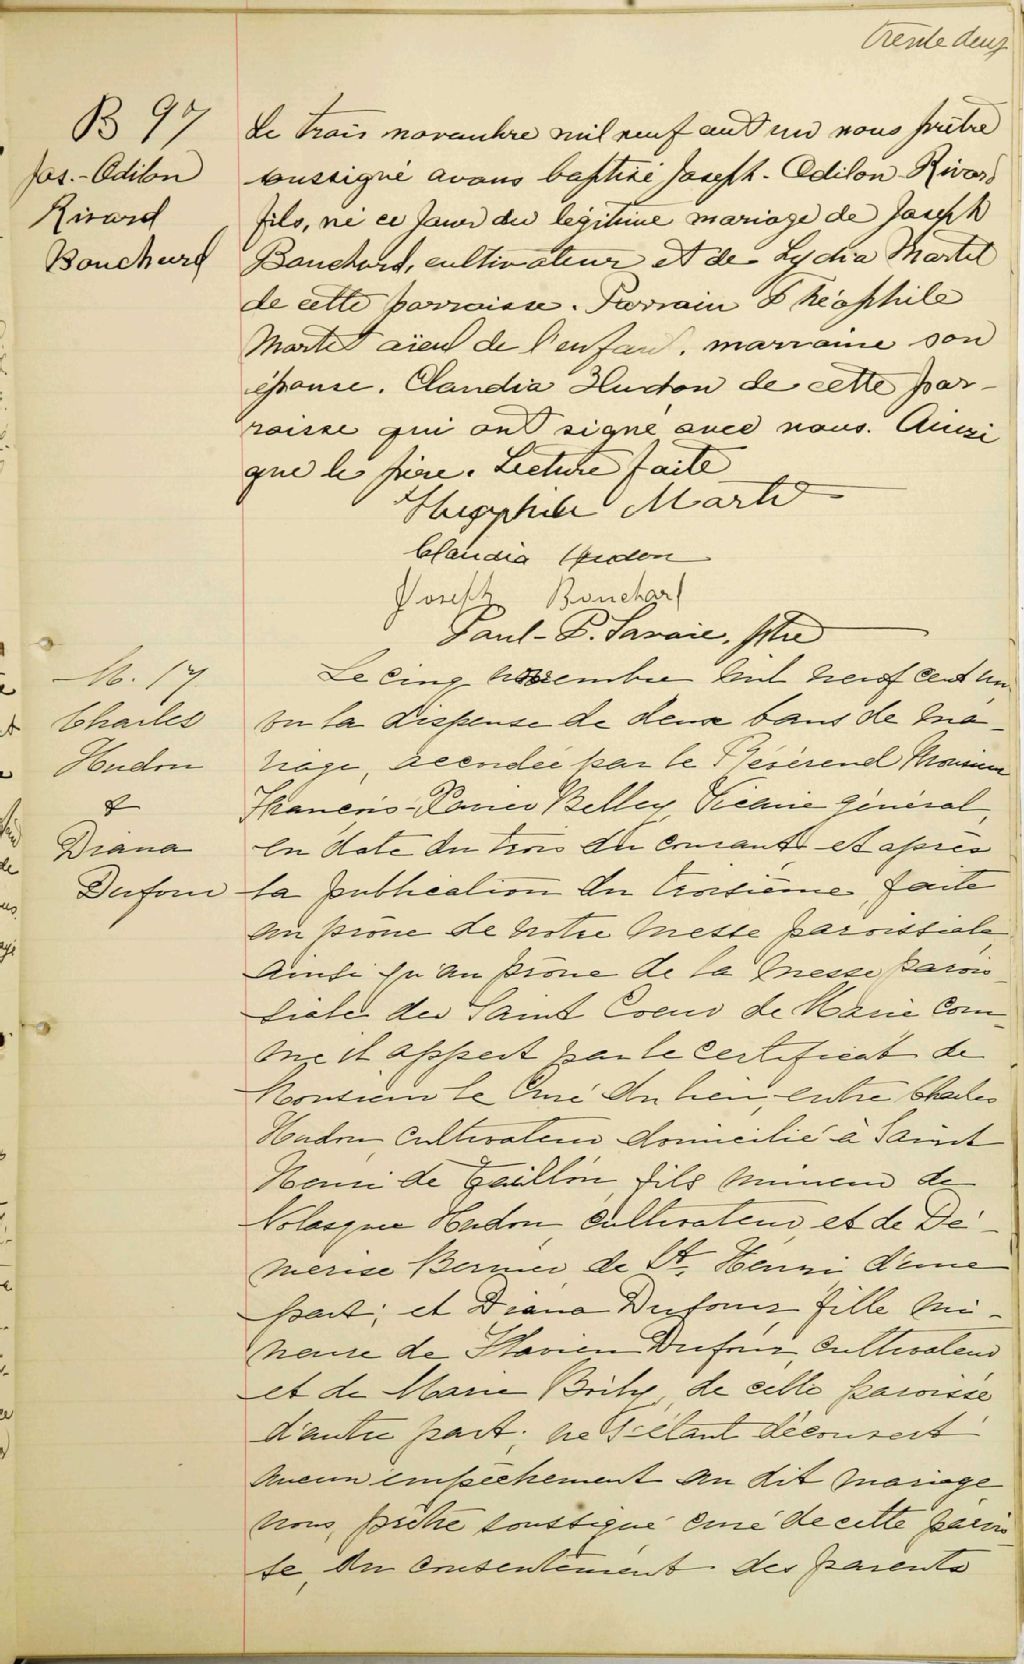 trente deux
B 97
Jos.-Odilon
Rivard
Bouchard
Le trois novembre mil neuf cent un nous prêtre
soussigné avons baptisé Joseph-Odilon-Rivard
fils, né ce jour du légitime mariage de Joseph
Bouchard, cultivateur et de Lydia Martel
de cette parroisse. Parrain Théophile
Martel aïeul de l'enfant. marraine son
épouse. Claudia Hudon de cette par-
roisse qui ont signé avec nous. Ainsi
que le père. Lecture faite
Théophile Martel
Claudia Hudon
Joseph Bouchard
Paul-P. Savaie, ptre
M. 17
Charles
Hudon
&
Diana
Dufour
Le cinq novembre mil neuf cent un
vu la dispense de deux bans de ma-
riage, accordée par le Révérend Monsieur
François-Xavier Belley, Vicaire général,
en date du trois du courant et après
la publication du troisième, faite
au prône de notre messe paroissiale
ainsi qu'au prône de la messe parois-
siale du Saint Coeur de Marie com-
me il appert par le certificat de
Monsieur le Curé du lieu, entre Charles
Hudon, cultivateur domicilié à Saint
Henri de Taillon, fils mineur de
Nolasque Hudon, cultivateur, et de Dé-
merise Bernier de St. Henri d'une
part; et Diana Dufour, fille mi-
neure de Flavien Dufour, cultivateur
et de Marie Boily, de cette paroisse
d'autre part; ne s'étant découvert
aucun empêchement au dit mariage
nous, prêtre soussigné curé de cette parois-
se, du consentement des parents